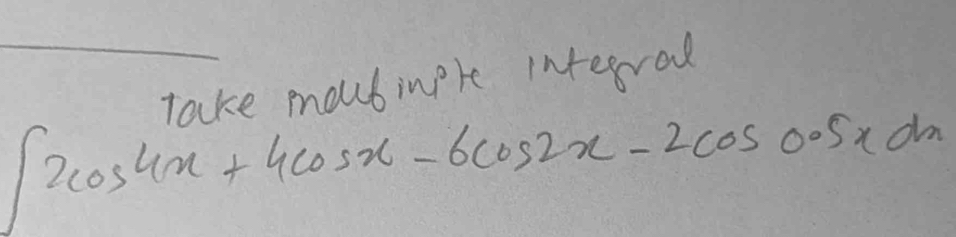 Take indefinite integral
∫2cos4x + 4cosx - 6cos2x - 2cos 0.5x dx